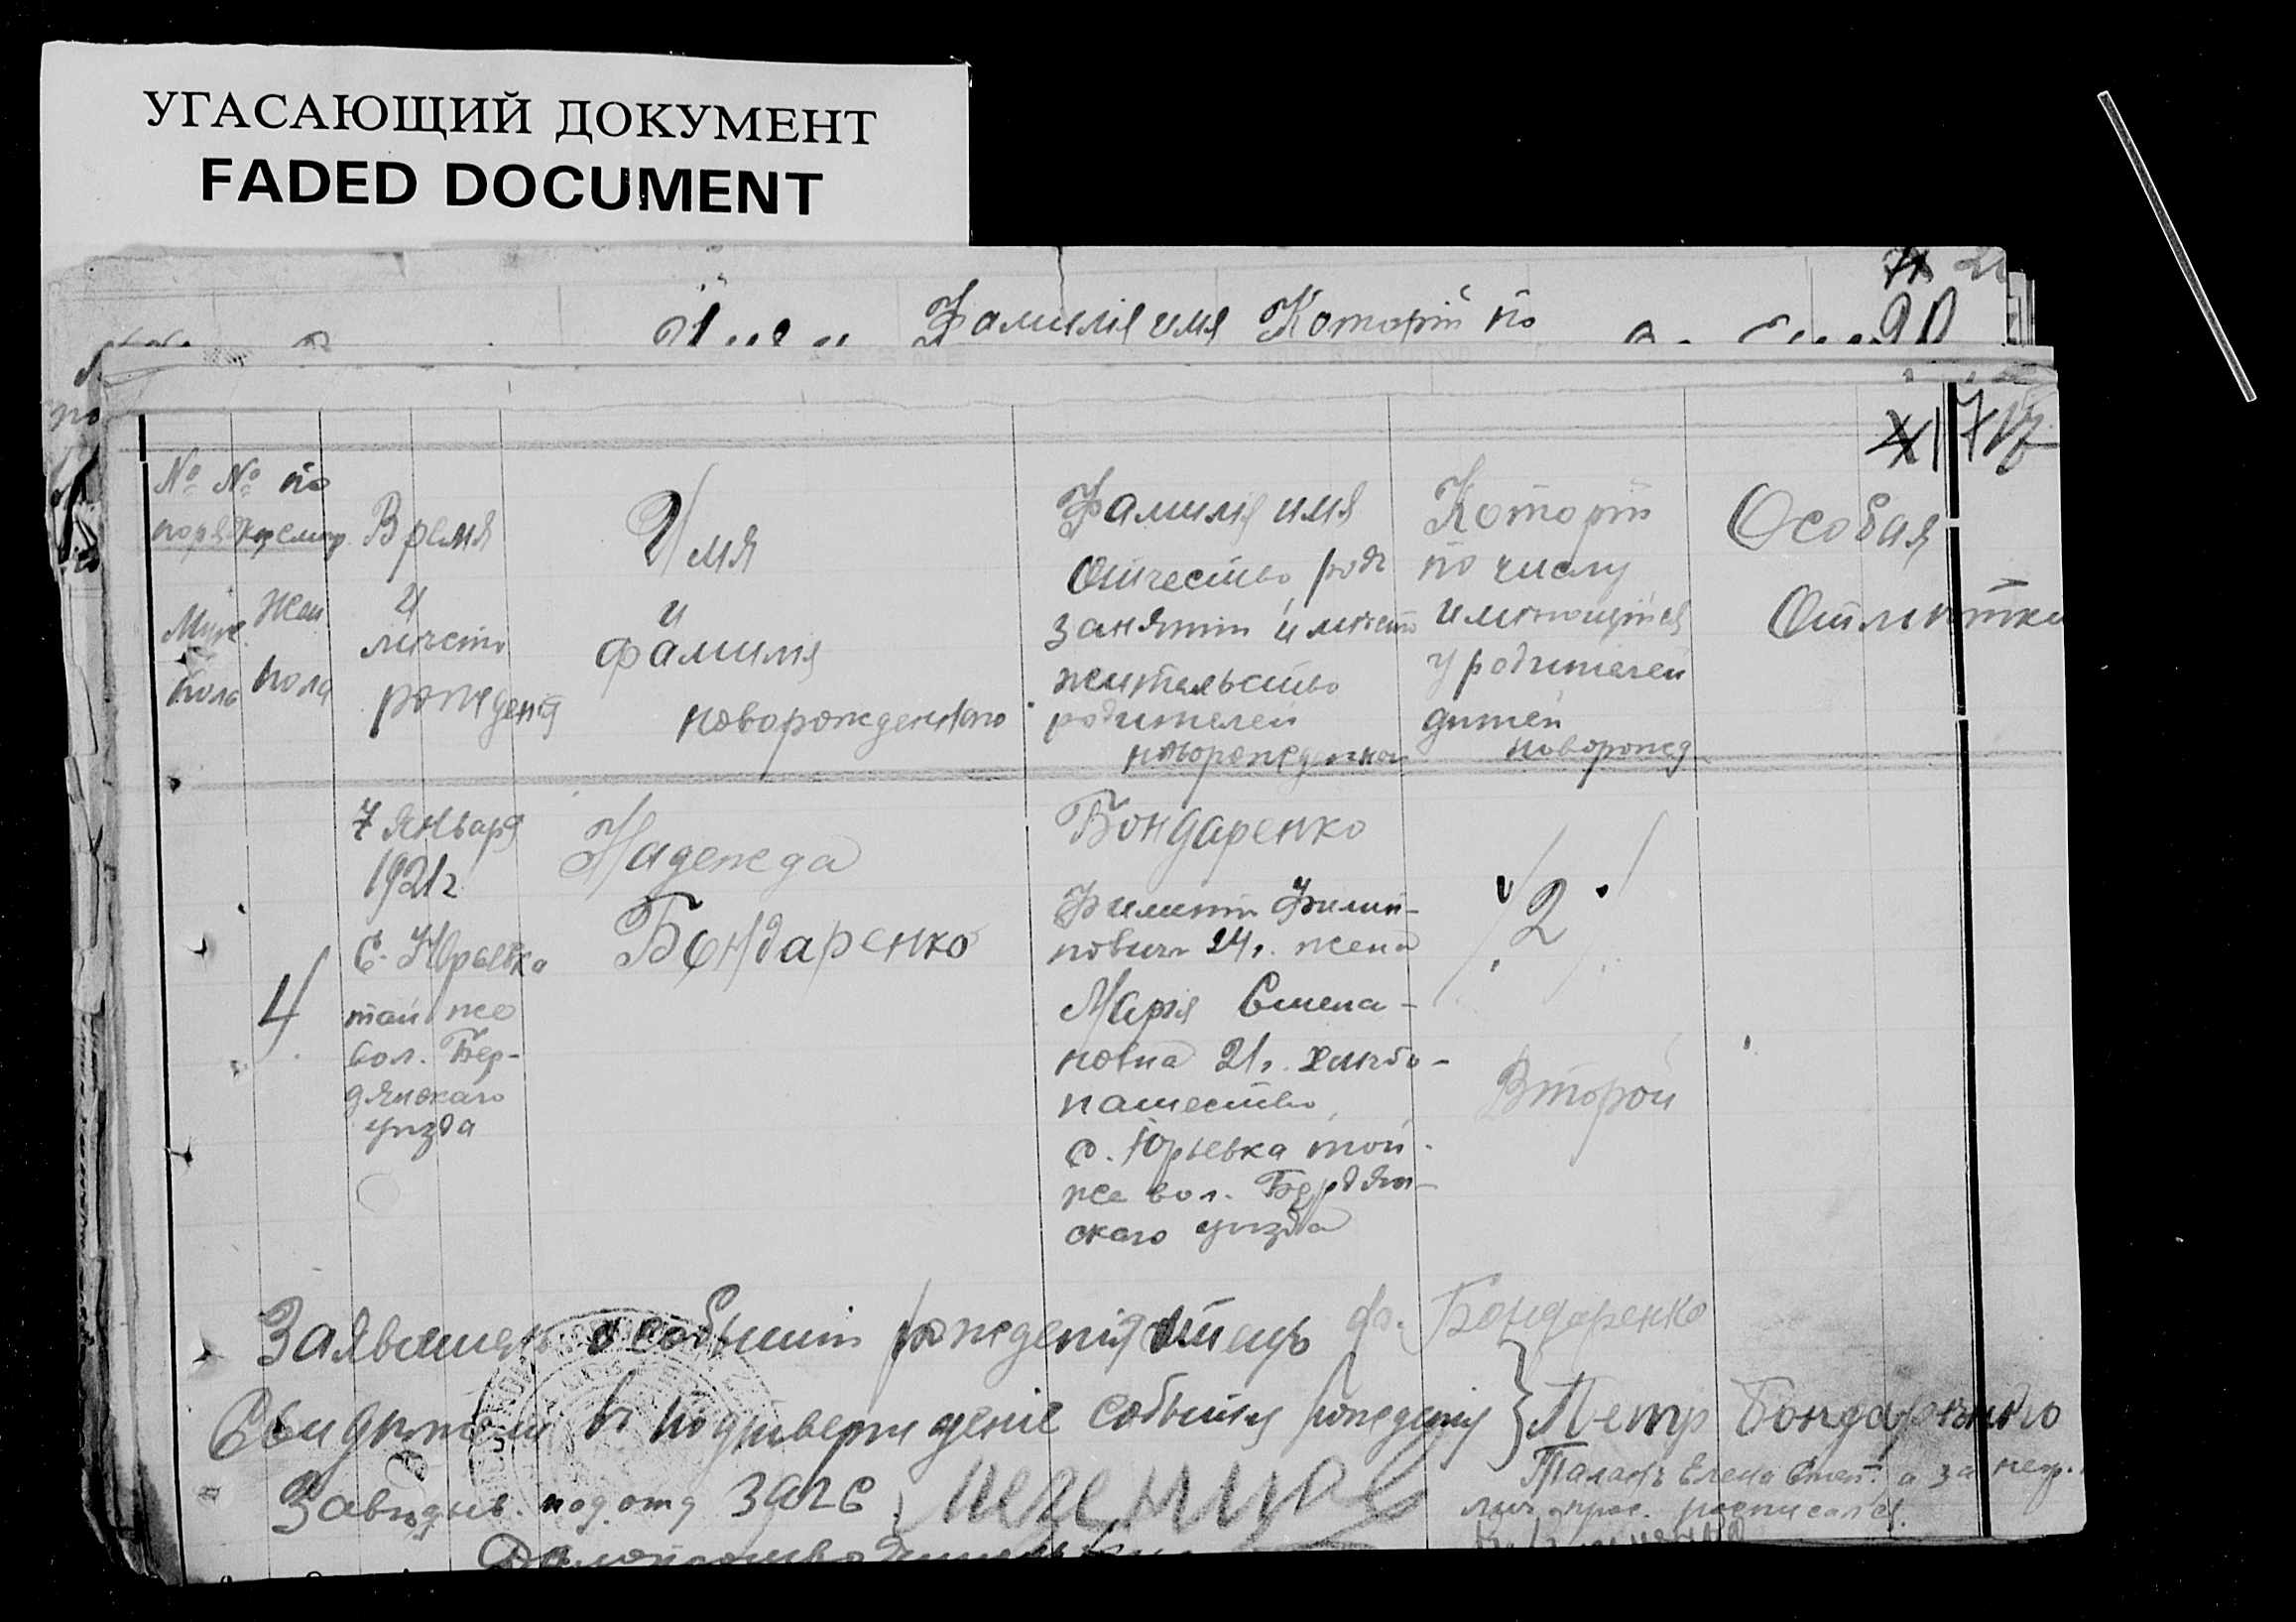 УГАСАЮЩИЙ ДОКУМЕНТ
FADED DOCUMENT
Фамилія имя Которій по
90
№ № по
Время
и
мѣсто
рожденія
Муж. Жен
полъ пола
Имя
и
фамилия
новорожденнаго
Фамилія имя
Отчество, родъ
занятій и мѣсто
жительство
родителей
новорожденнаго
Которій
по числу
имѣющійся
у родителей
дитей
новорожд
Особая
Отмѣтка
4
7 Января
1921 г.
с. Юрьевка
той же
вол. Бер-
дянскаго
уѣзда
Надежда
Бондаренко
Бондаренко
Филиппъ Филип-
повичъ 24 г. жена
Марія Степа-
новна 21 г. хлѣбо-
пашество,
с. Юрьевка той-
же вол. Бердян-
скаго уѣзда
2
Второй
Заявившій о событіи рожденія отецъ Ф. Бондаренко
Свидѣтели въ подтвержденіе событія рожденія } Петр Бондаренко
Таланъ Елена Степ. а за негр.
лич. прос. росписался.
Завѣдыв. подотд ЗАГС
Дѣлопроизводитель